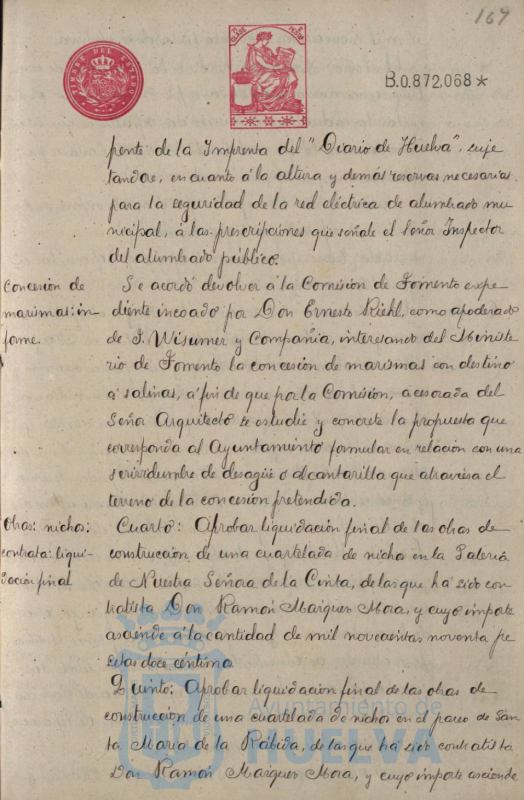 169
TIMBRE DEL ESTADO
B.0.872,068*
pente de la Imprenta del "Diario de Huelva", suje
tandose, en cuanto á la altura y demás reservas necesarias
para la seguridad de la red eléctrica de alumbrado mu
nicipal, á las prescripciones que señale el Señor Inspector
del alumbrado público.
Concesion de
marismas: in-
forme.
Se acordó devolver á la Comision de Fomento expe
diente incoado por Don Ernesto Riehl, como apoderado
de J. Wisumer y Compañia, interesando del Ministe
rio de Fomento la concesion de marismas con destino
á salinas, á fin de que por la Comision, acesorada del
Señor Arquitecto se estudie y concrete la propuesta que
corresponda al Ayuntamiento formular en relacion con una
servidumbre de desagüe o alcantarilla que atraviesa el
terreno de la concesion pretendida.
Obras: nichos:
contrata: liqui-
dación final
Cuarto: Aprobar liquidacion final de las obras de
construccion de una cuartelada de nichos en la Galeria
de Nuestra Señora de la Cinta, de las que ha sido con
tratista Don Ramón Marquez Mora, y cuyo importe
asciende á la cantidad de mil novecientas noventa pe
setas doce céntimos
Quinto: Aprobar liquidacion final de las obras de
construccion de una cuartelada de nichos en el paseo de San
ta Maria de la Rábida, de las que ha sido contratista
Don Ramón Marquez Mora, y cuyo importe asciende
Ayuntamiento de
HUELVA